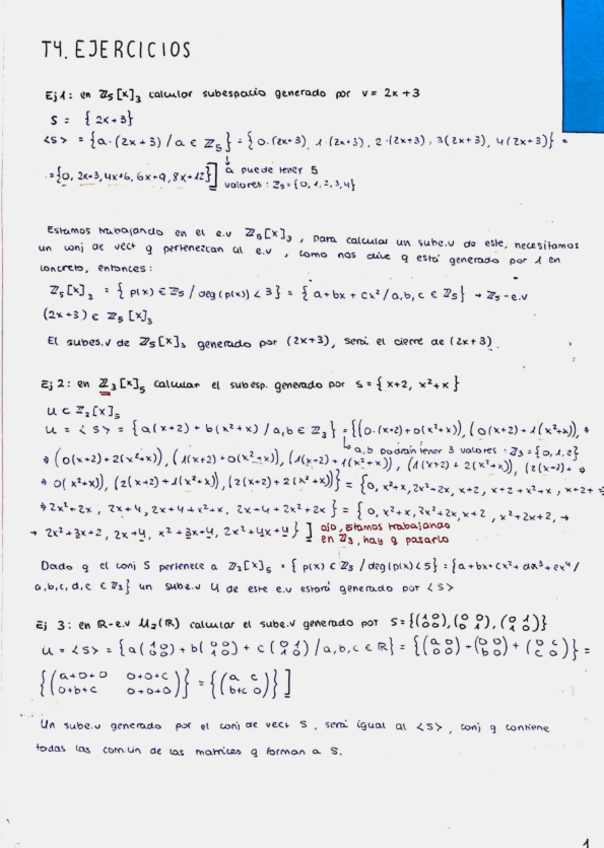 T4. EJERCICIOS
Ej 1: en ℤ₅[x]₃ calcular subespacio generado por v = 2x + 3
S = { 2x + 3}
<S> = {a·(2x + 3) / a ∈ ℤ₅} = {0·(2x+3), 1·(2x+3), 2·(2x+3), 3(2x+3), 4(2x+3)} =
= {0, 2x+3, 4x+6, 6x+9, 8x+12}] a puede tener 5
valores: ℤ₅ = {0, 1, 2, 3, 4}
Estamos trabajando en el e.v ℤ₅[x]₃, para calcular un sube.v de este, necesitamos
un conj de vect q pertenezcan al e.v, como nos dice q está generado por 1 en
concreto, entonces:
ℤ₅[x]₃ = { p(x) ∈ ℤ₅ / deg(p(x)) < 3} = { a + bx + cx² / a, b, c ∈ ℤ₅} → ℤ₅ - e.v
(2x+3) ∈ ℤ₅[x]₃
El subes.v de ℤ₅[x]₃ generado por (2x+3), será el cierre de (2x+3).
Ej 2: en ℤ₃[x]₅ calcular el subesp. generado por S = { x+2, x²+x }
U ⊂ ℤ₂[x]₅
U = <S> = {a(x+2) + b(x²+x) / a, b ∈ ℤ₃} = {(0·(x+2)+0(x²+x)), (0(x+2)+1(x²+x)), →
a, b podrán tener 3 valores: ℤ₃ = {0, 1, 2}
→ (0(x+2)+2(x²+x)), (1(x+2)+0(x²+x)), (1(x+2)+1(x²+x)), (1(x+2)+2(x²+x)), (2(x+2)+ →
→ 0(x²+x)), (2(x+2)+1(x²+x)), (2(x+2)+2(x²+x))} = {0, x²+x, 2x²+2x, x+2, x+2+x²+x, x+2+ →
→ 2x²+2x, 2x+4, 2x+4+x²+x, 2x+4+2x²+2x} = {0, x²+x, 2x²+2x, x+2, x²+2x+2, →
→ 2x²+3x+2, 2x+4, x²+3x+4, 2x²+4x+4 } ] ojo, estamos trabajando
en ℤ₃, hay q pasarlo
Dado q el conj S pertenece a ℤ₃[x]₅ = { p(x) ∈ ℤ₃ / deg(p(x) < 5} = {a+bx+cx²+dx³+ex⁴/
a, b, c, d, e ∈ ℤ₃} un sube.v U de este e.v estará generado por <S>
Ej 3: en ℝ-e.v M₂(ℝ) calcular el sube.v generado por S = {(1 0 / 0 0), (0 0 / 1 0), (0 1 / 1 0)}
U = <S> = {a(1 0 / 0 0) + b(0 0 / 1 0) + c(0 1 / 1 0) / a, b, c ∈ ℝ} = {(a 0 / 0 0) + (0 0 / b 0) + (0 c / c 0)} =
{(a+0+0 0+0+c / 0+b+c 0+0+0)} = {(a c / b+c 0)}]
Un sube.v generado por el conj de vect S, será igual al <S>, conj q contiene
todas las com.un de las matrices q forman a S.
1